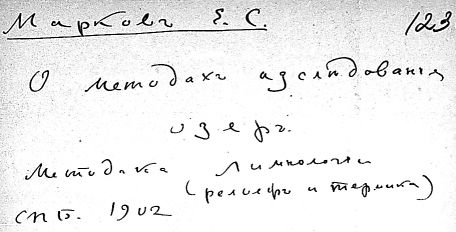 Марковъ Е. С. 123
О методахъ изслѣдованія
озеръ.
Методика Лимнологіи
(рельефъ и термика)
СПБ. 1902